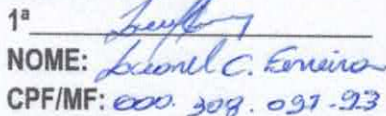 1ª
NOME: Leonel C. Ferreira
CPF/MF: 000. 308. 091-93